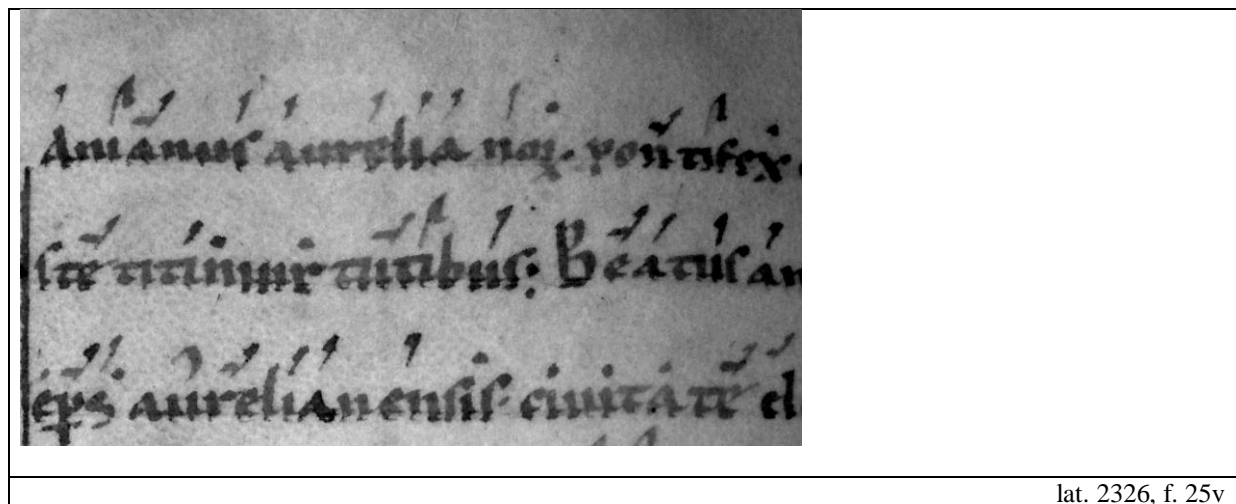 Anianus aurelia noꝝ. pontifex
ste titit inuirtutibus; Beatus an
ep̅s aurelianensis. ciuitatē el
lat. 2326, f. 25v